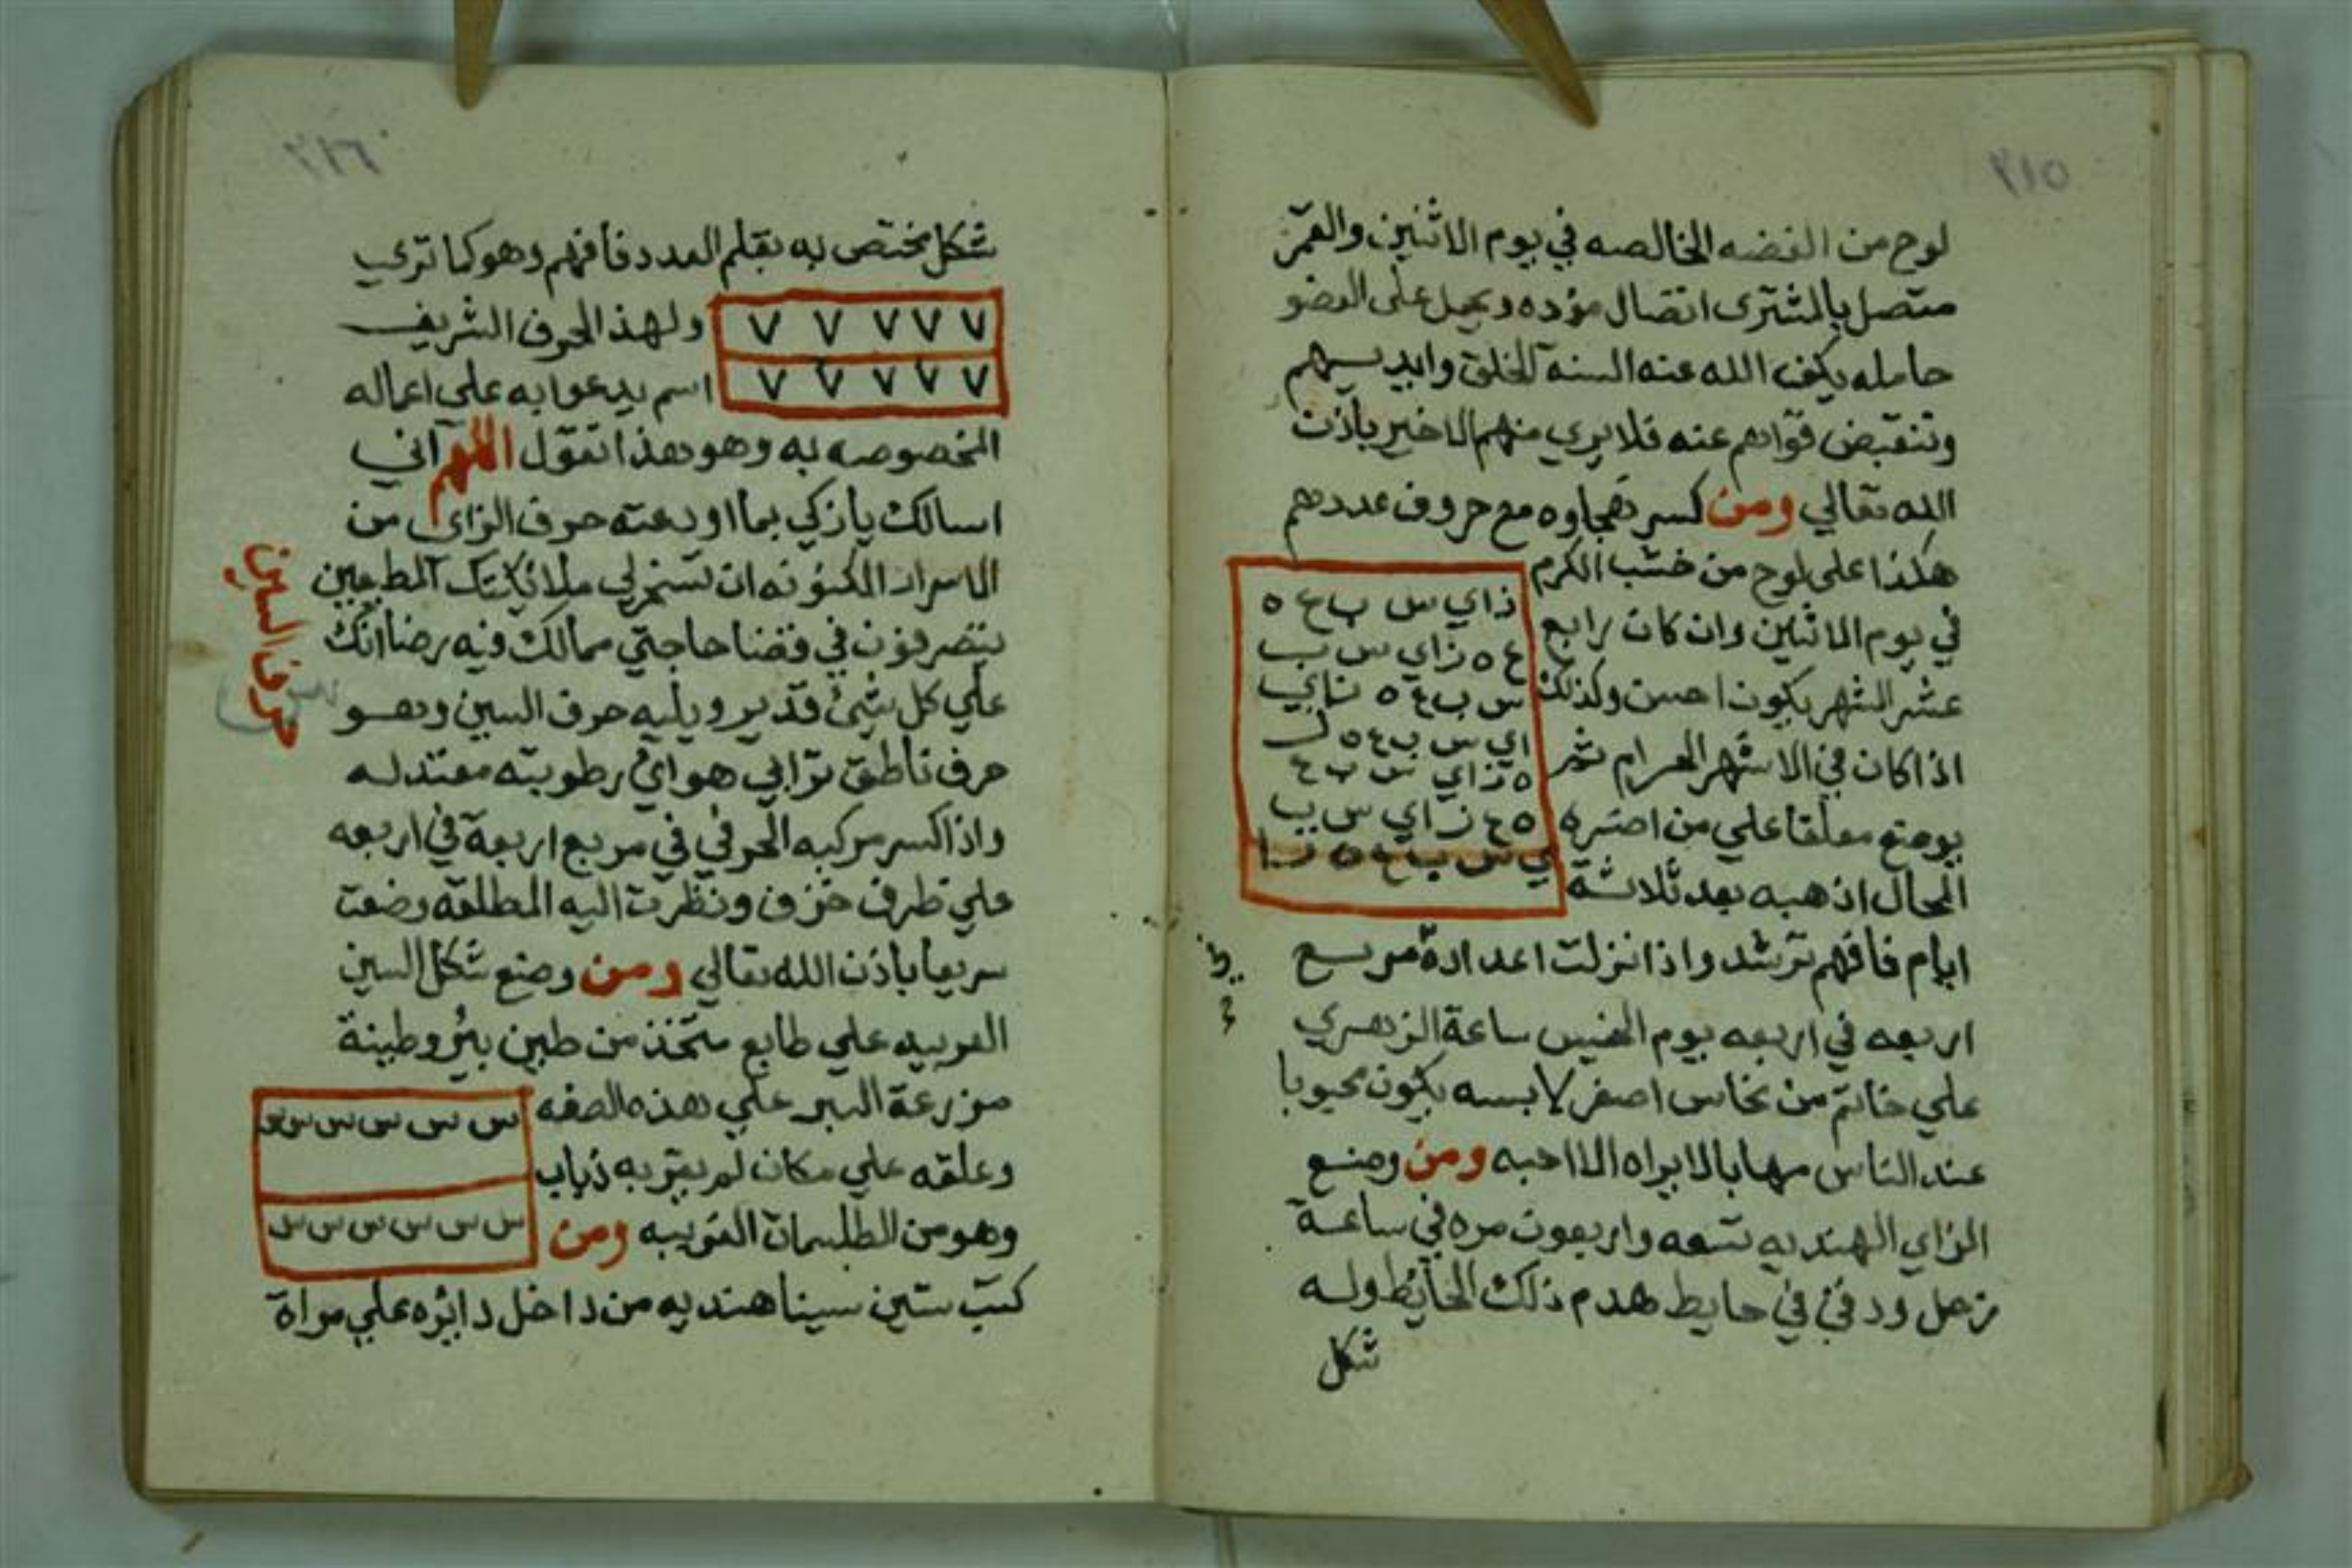 ٢١٥
لوح من الفضه الخالصه في يوم الاثنين والقمر
متصل بالمشترى اتصال مؤده ويحمل على العضو
حامله يكف الله عنه السنة الخلق وايديهم
وتنقبض قواهم عنه فلا يري منهم الا خير باذن
الله تعالي ومن كسر تهجاوه مع حروف عددهم
هكذا على لوح من خشب الكرم
في يوم الاثنين وان كان رابع
عشر الشهر يكون احسن وكذلك
اذا كان في الاشهر الحرام ثم
يوضع معلقا علي من اضره
الحال اذهبه بعد ثلاثة
زاي س ب ع ه
ع ه زاي س ب
س ب ع ه زاي
اي س ب ع ه ز
ه زاي س ب ع
ه ع زاي س ب
ي س ب ع ه ز ا
ايام فافهم ترشد واذا نزلت اعداده مربع
اربعه في اربعه يوم الخميس ساعة الزهري
علي خاتم من نحاس اصفر لابسه يكون محبوبا
عند الناس مهابا لا يراه الا احبه ومن وضع
الزاي الهنديه تسعه واربعون مره في ساعة
زحل ودفن في حايط هدم ذلك الحايط وله
شكل
٢١٦
شكل مختص به بقلم العدد فافهم وهو كما تري
٧ ٧ ٧ ٧ ٧
٧ ٧ ٧ ٧ ٧
ولهذا الحرف الشريف
اسم يدعوا به علي اعماله
المخصوصه به وهو هذا تقول اللهم اني
اسالك يا زكي بما اودعته حرف الزاي من
الاسرار المكنونه ان تسخر لي ملائكتك المطيعين
يتصرفون في قضا حاجتي مما لك فيه رضا انك
علي كل شئ قدير ويليه حرف السين وهو
حرف السين
حرف ناطق ترابي هوائي رطوبته معتدله
واذا كسر مركبه الحرفي في مربع اربعة في اربعه
علي ظرف خزف ونظرت اليه المطلقه وضعت
سريعا باذن الله تعالي ومن وضع شكل السين
العربيه علي طابع متخذ من طين بئر وطينة
مزرعة البر علي هذه الصفه
وعلقه علي مكان لم يقربه ذباب
وهو من الطلسمات الغريبه ومن
س س س س س س س
س س س س س س س
كتب ستين سينا هنديه من داخل دائره علي مراة